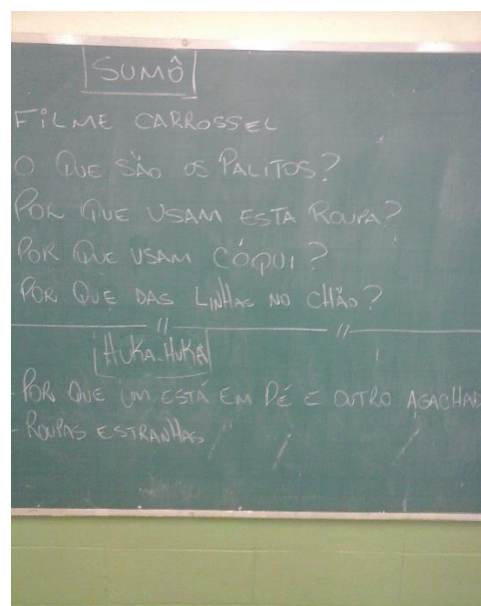 SUMÔ
FILME CARROSSEL
O QUE SÃO OS PALITOS?
POR QUE USAM ESTA ROUPA?
POR QUE USAM CÓQUI?
POR QUE DAS LINHAS NO CHÃO?
HUKA-HUKA
- POR QUE UM ESTÁ EM PÉ E OUTRO AGACHAD
- ROUPAS ESTRANHAS